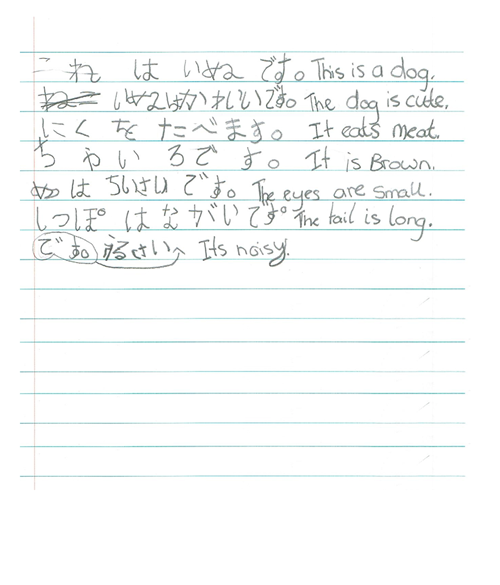 これ は いぬ です。This is a dog.
いぬはかわいいです。The dog is cute.
にく を たべます。 It eats meat.
ちゃいろで す。 It is Brown.
め は ちいさい です。The eyes are small.
しっぽ は ながいです。The tail is long.
です。うるさい Its noisy.